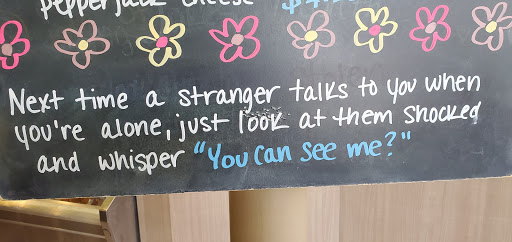 pepper jack cheese
Next time a stranger talks to you when
you're alone, just look at them shocked
and whisper "You can see me?"